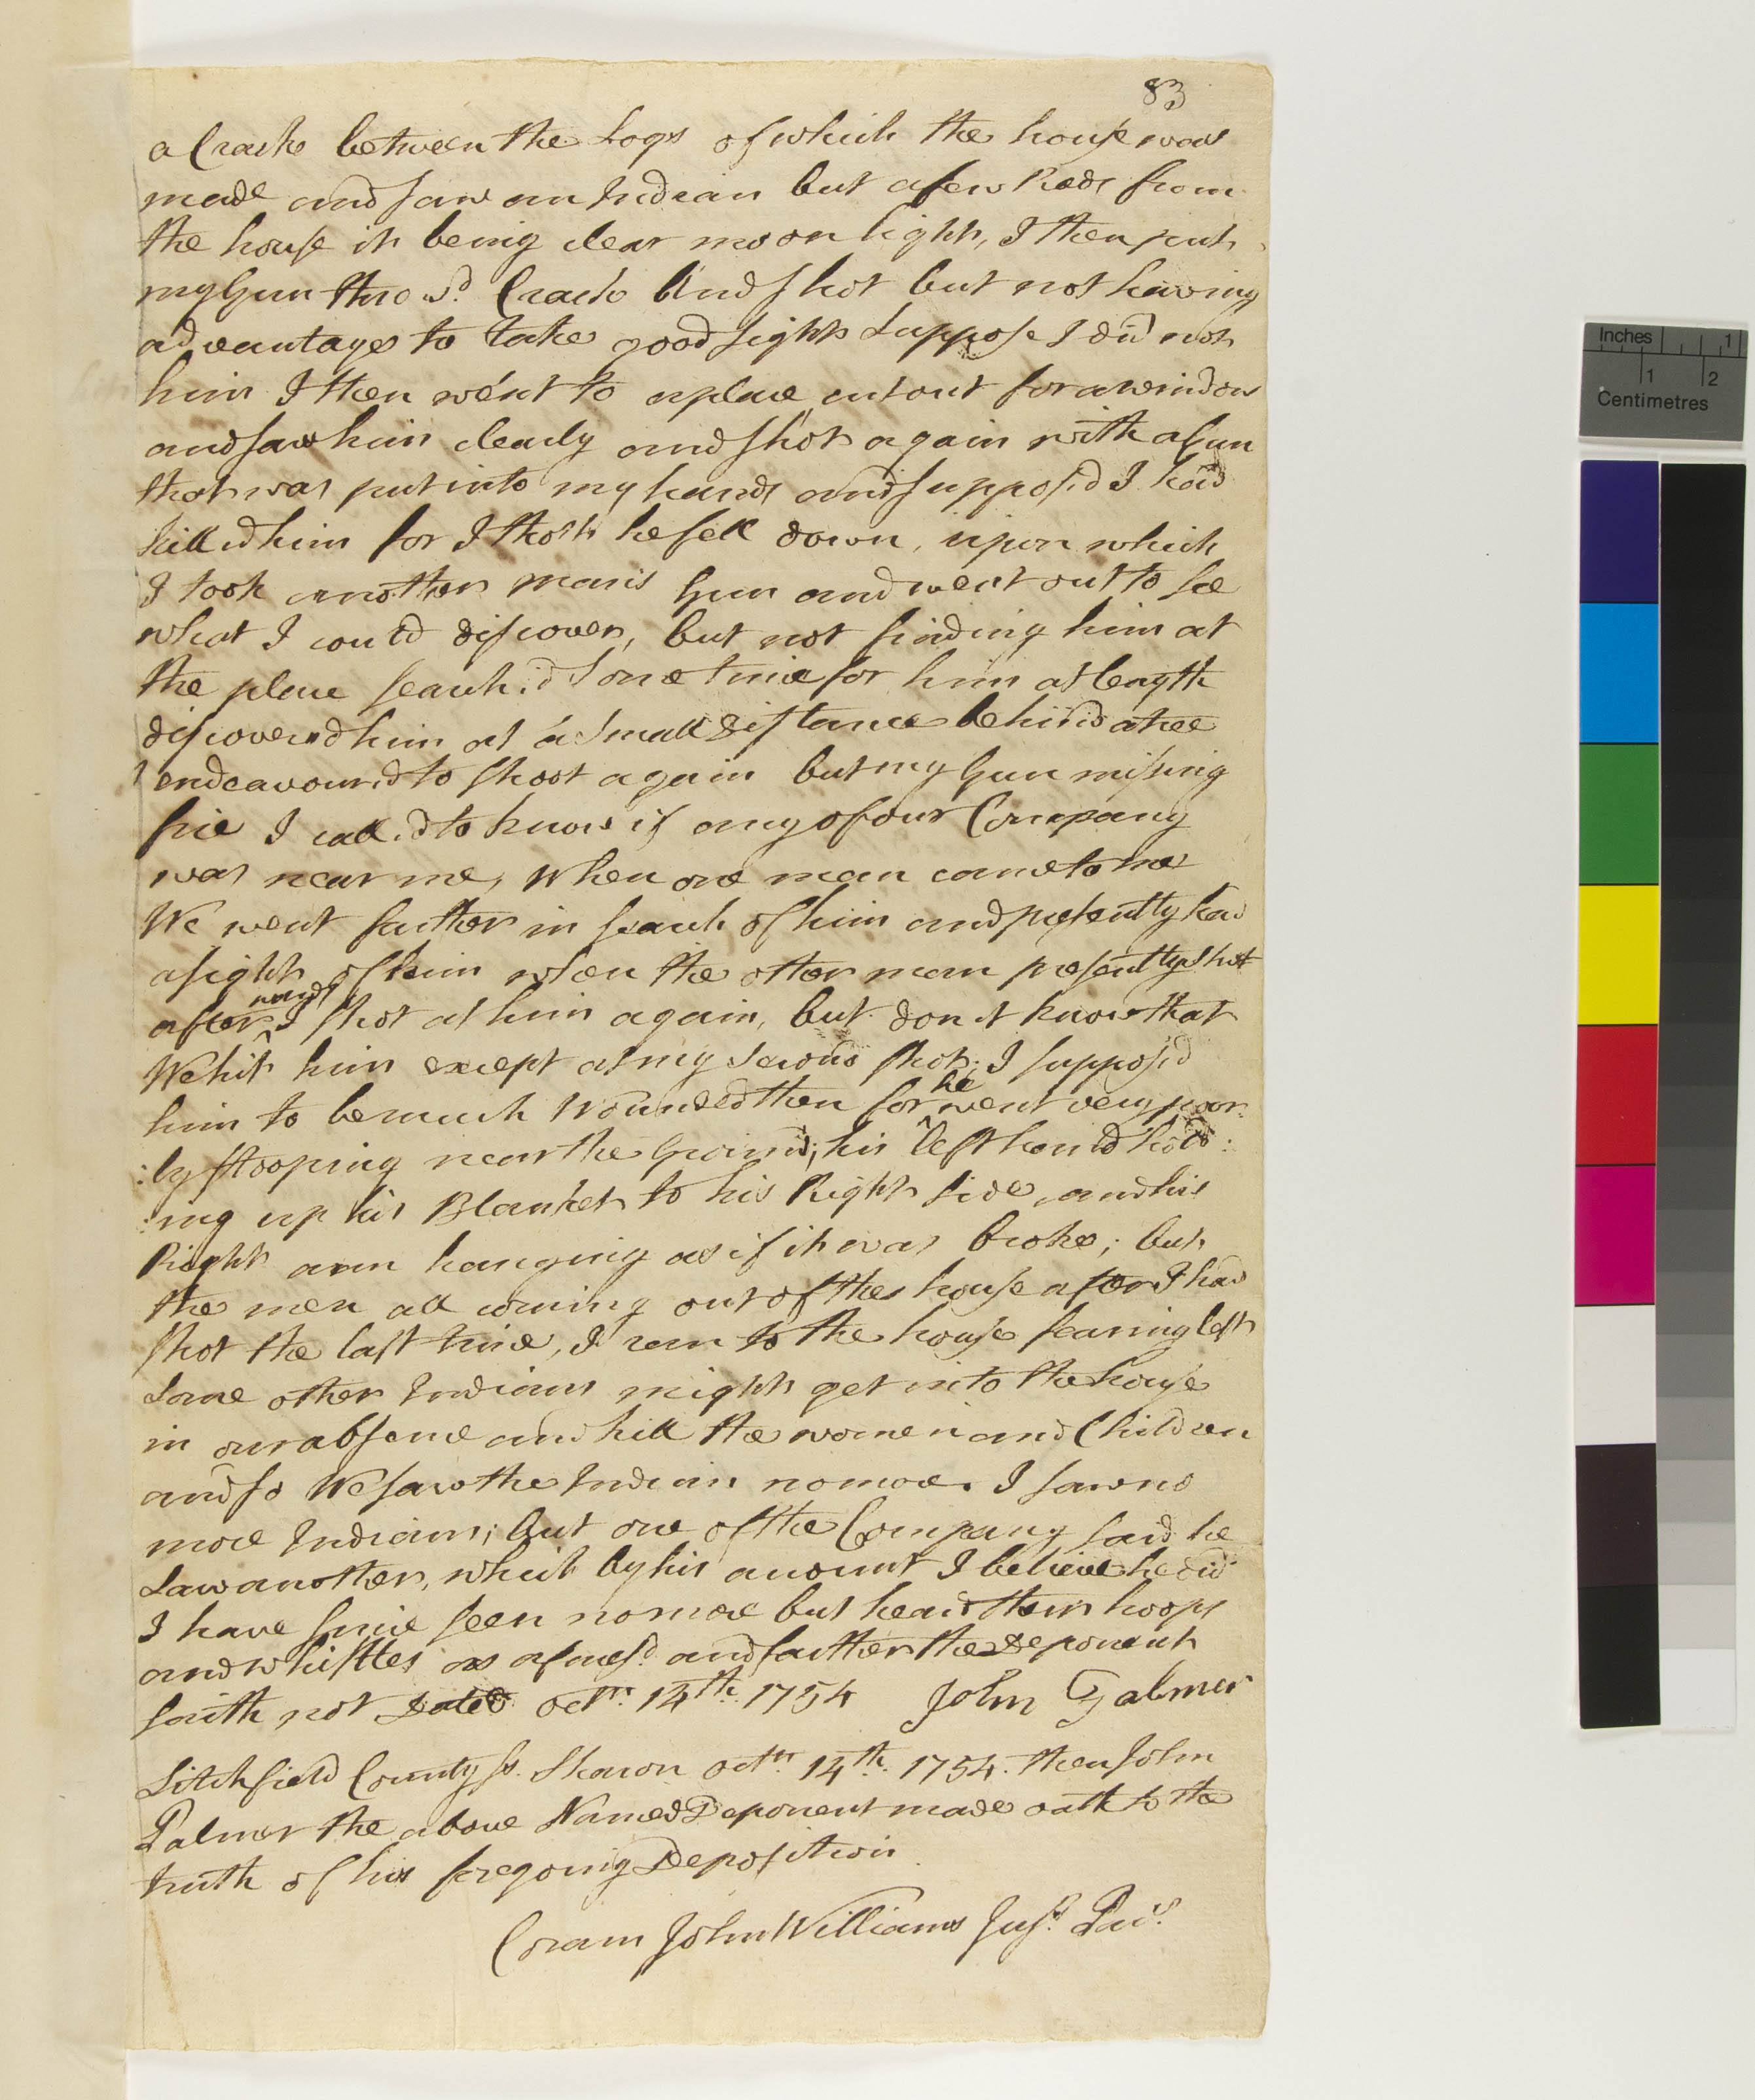 83
a Crack between the Logs of which the house was
made and saw an Indian but a few Rods from
the house it being clear moon light, I then put
my Gun thro sd. Crack And shot but not having
advantage to take good sight Suppose I did not
him I then went to a place cut out for a window
and saw him clearly and shot again with a Gun
that was put into my hands and suppos'd I had
kill'd him for I tho't he fell down, upon which
I took another man's Gun and went out to see
what I could discover, but not finding him at
the place search'd Some time for him at length
discovered him at a Small distance behind a tree
I endeavour'd to shoot again but my Gun missing
fire I call'd to know if any of our Company
was near me, When one man came to me
We went further in search of him and presently had
a sight of him when the other man presently shot
afterwards I shot at him again, but don't know that
We hit him except at my Second shot; I suppos'd
him to be much Wounded then for he went very poor:
:ly stooping near the Ground; his left hand hold:
:ing up his Blanket to his Right side, and his
Right arm hanging as if it was broke; but
the men all coming out of the house after I had
shot the last time, I ran to the house fearing lest
Some other Indians might get into the house
in our absence and kill the women and Children
and so We saw the Indian no more. I saw no
more Indians; but one of the Company said he
Saw another, which by his account I believe he did
I have since seen no more but heard their hoops
and whistles as aforesd. and further the Deponent
saith not Dated octr. 14th. 1754 John Palmer
Litchfield County ss. Sharon octr. 14th. 1754. then John
Palmer the above Named Deponent made oath to the
truth of his foregoing Deposition
Coram John Williams Just. Pacs.
Inches 1
1 2
Centimetres